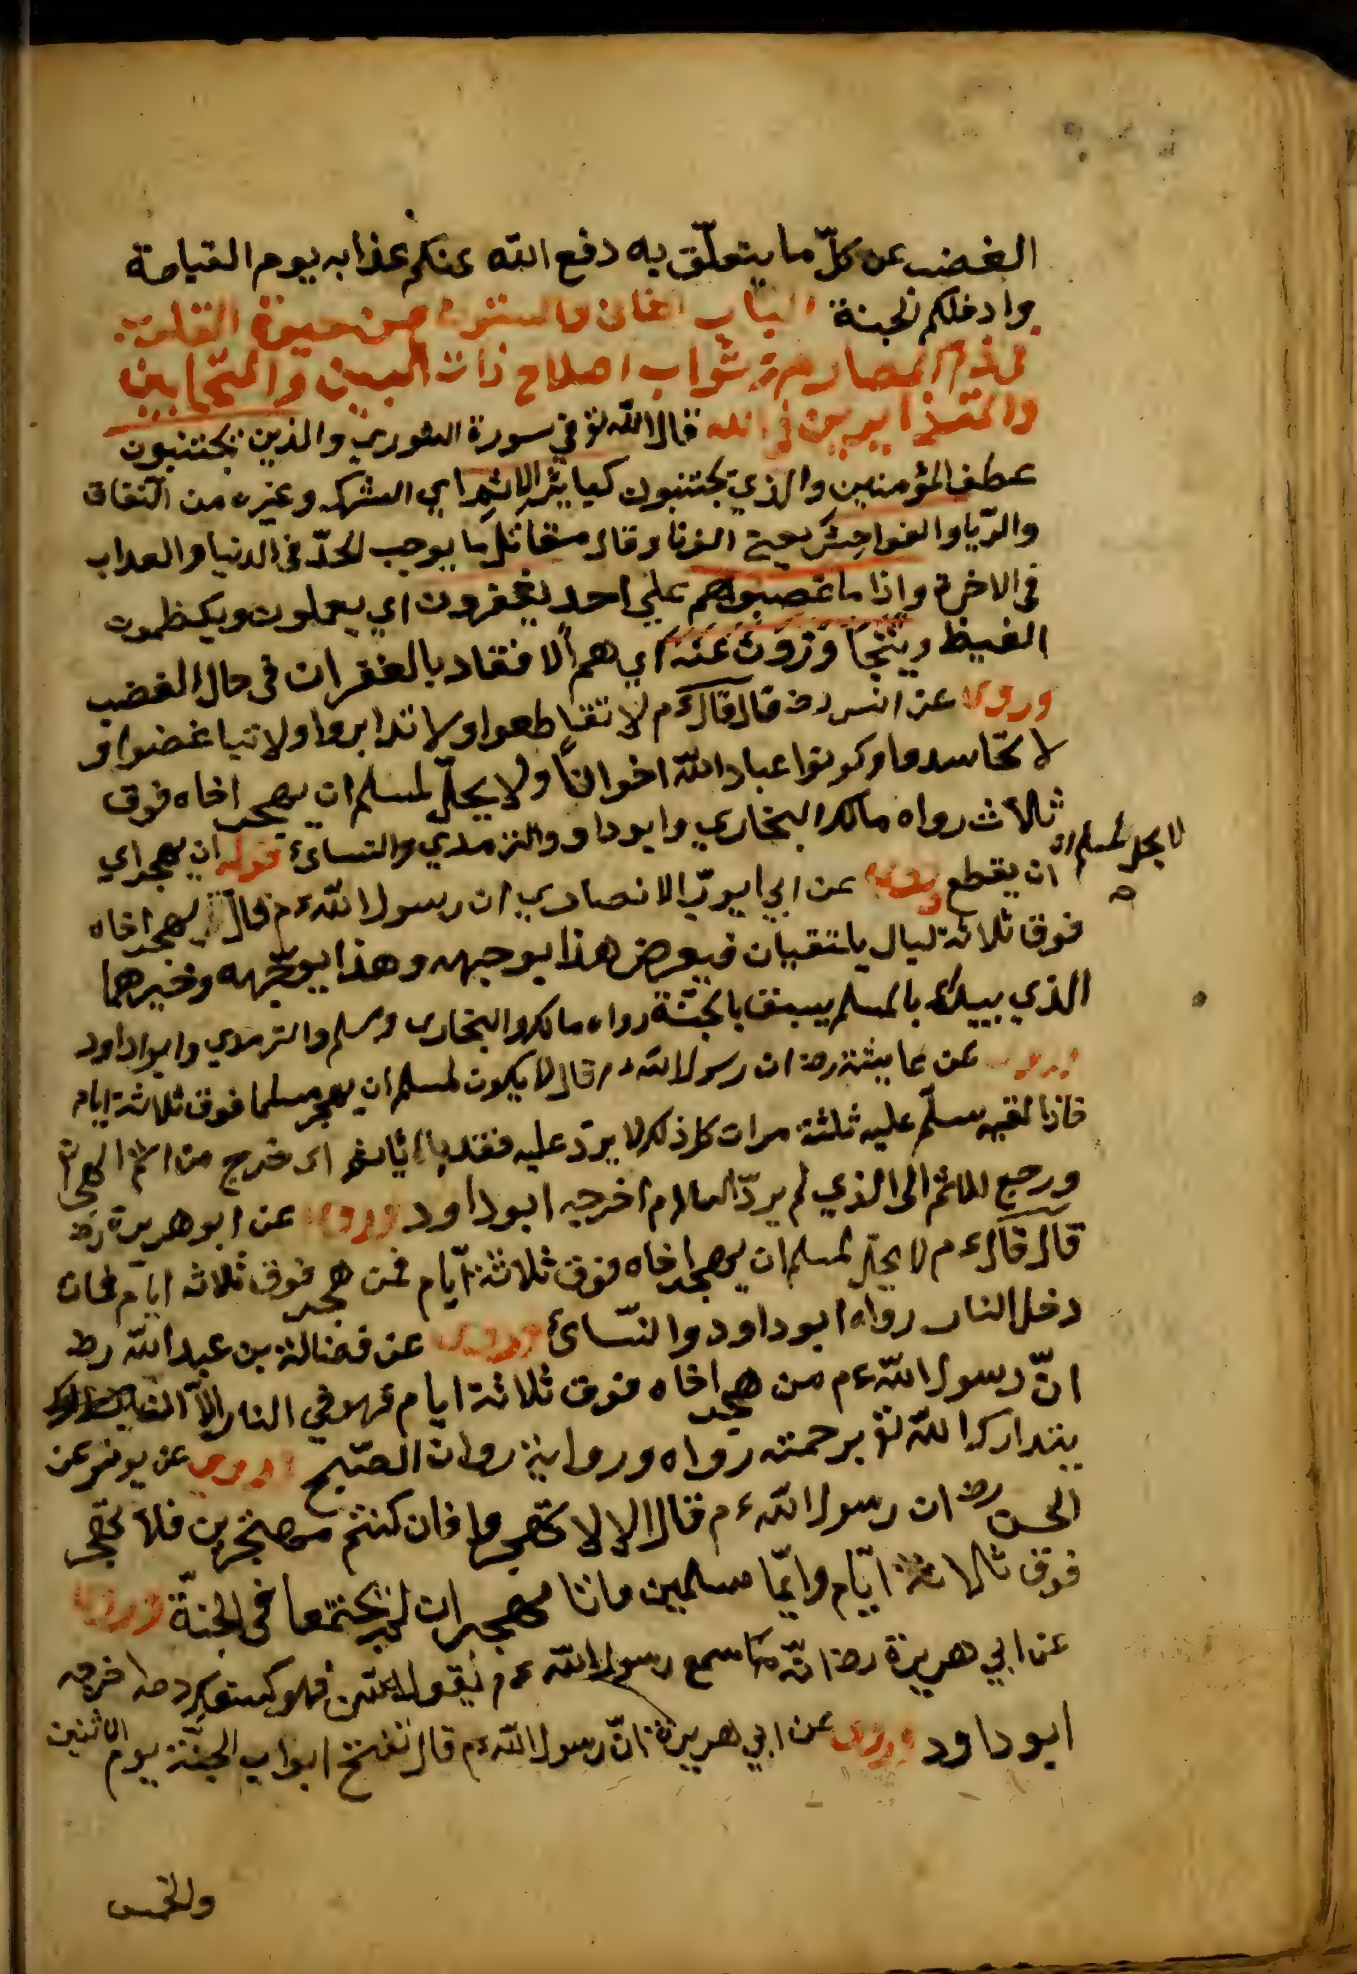 الغضب عن كلّ ما يتعلّق به دفع الله عنكم عذابه يوم القيامة
وادخلكم الجنة الباب الثاني والستون من حيوة القلوب
في ذم المصارمة وثواب اصلاح ذات البين والمتحابين
والمتذابرين في الله قال الله تع في سورة الشوري والذين يجتنبون
عطف المؤمنين والذي يجتنبون كبائر الاثم اي الشرك وغيره من النفاق
والرّيا والفواحش يعني الزنا وقال مقاتل ما يوجب الحدّ في الدنيا والعداب
في الاخرة واذا ما غضبوا هم علي احد يغفرون اي يحملون ويكظمون
الغيظ ويتجاوزون عنه اي هم الا بالغفران في حال الغضب
وروي عن انس رض قال قال ءم لا تقاطعوا ولا تدابروا ولا تباغضوا و
لا تحاسدوا وكونوا عباد الله اخوانًا ولا يحلّ لمسلم ان يهجر اخاه فوق
ثلاث رواه مالك البخاري وابوداو والترمدي والنسائ قوله ان يهجر اي
ان يقطع روي عن ابي ايوبّ الانصاري ان رسول الله ءم قال يهجر اخاه
لا يحل لمسلم ان
فوق ثلاثة ليال يلتقيان فيعرض هذا بوجهه وهذا بوجهه وخيرهما
الذي يبدأ بالسلم يسبق بالجنّة رواه مالك والبخاري ومسلم والترمدي وابوداود
وروي عن عايشة رض ان رسول الله ءم قال لا يكون لمسلم ان يهجر مسلما فوق ثلاثة ايام
فاذا لقيه سلّم عليه ثلثة مرات كل ذلك لا يردّ عليه فقد باء باثمه اي خرج من اثم الهجران
ورجع الاثم الي الذي لم يردّ السلام اخرجه ابوداود وروي عن ابو هريرة رض
قال قال ءم لا يحلّ لمسلم ان يهجر اخاه فوق ثلاثة ايّام فمن هجر فوق ثلاثه ايام فمات
دخل النار رواه ابوداود والنّسائ وروي عن فضالة بن عبد الله رض
انّ رسول الله ءم من هجر اخاه فوق ثلاثة ايام فهو في النار الّا ان
يتدارك الله تع برحمته رواه وروايته روات الصّحيح وروي عن يونس عن
الحسن رض ان رسول الله ءم قال الا لا تهجروا فان كنتم مهتجرين فلا تهجر
فوق ثلاثة ايّام وايّما مسلمين ماتا مهجران لم يجتمعا في الجنّة وروي
عن ابي هريرة رض انّه سمع رسول الله ءم يقول فهو كسفك دمه اخرجه
ابوداود وروي عن ابي هريرة انّ رسول الله ءم قال تفتح ابواب الجنّة يوم الاثنين
والخمس